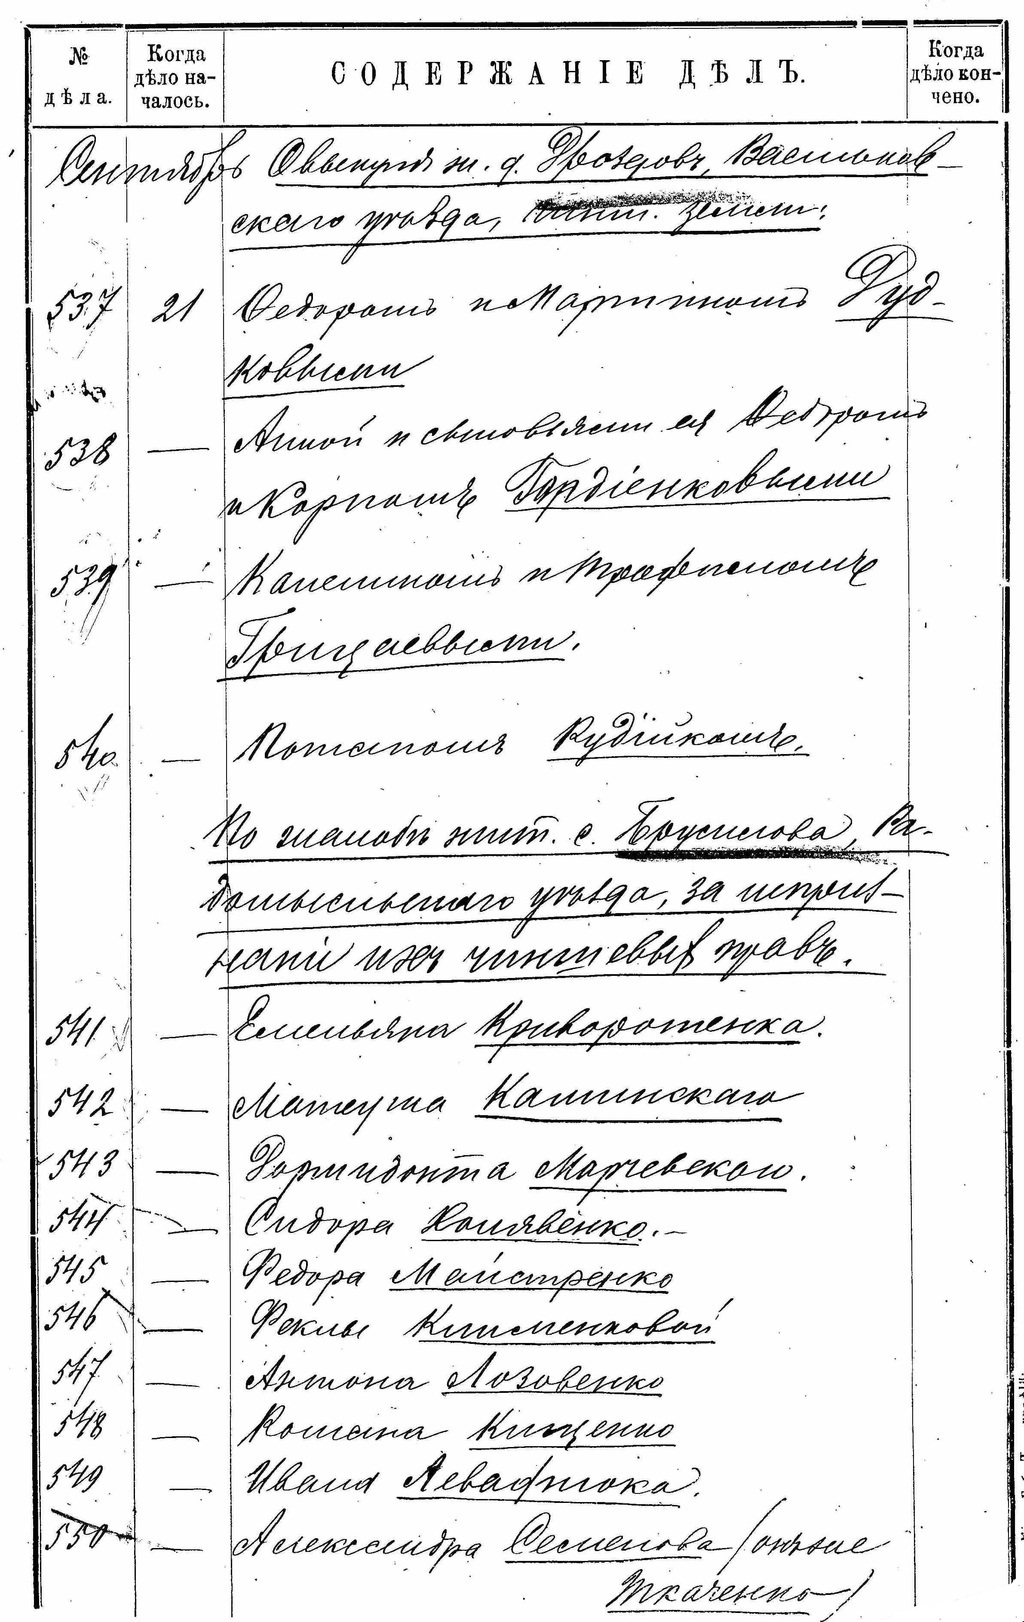 № дѣла.
Когда дѣло на-
чалось.
СОДЕРЖАНІЕ ДѢЛЪ.
Когда дѣло кон-
чено.
Сентябрь О выкупѣ ж. д. Дроздовъ, Васильков-
скаго уѣзда, земли:
537 21 Федоромъ и Мартиномъ Дуд-
ковыми
538 — Анной и сыновьями ея Федоромъ
и Карпомъ Гордіенковыми
539 — Калетником и Трофимомъ
Грищаевыми.
540 — Потапомъ Рудійкомъ.
По жалобѣ жит. с. Брусилова, Ра-
домысльскаго уѣзда, за непризна-
наніи ихъ чиншевыхъ правъ.
541 — Емельяна Криворотенка.
542 — Матеуша Калинскаго
543 — Дормидонта Марчевскаго.
544 — Сидора Холявенко.—
545 — Федора Майстренко
546 — Феклы Клименковой
547 — Антона Лозовенко
548 — Романа Кищенко
549 — Ивана Левафтюка.
550 — Александра Семенова (онъ же
Ткаченко)